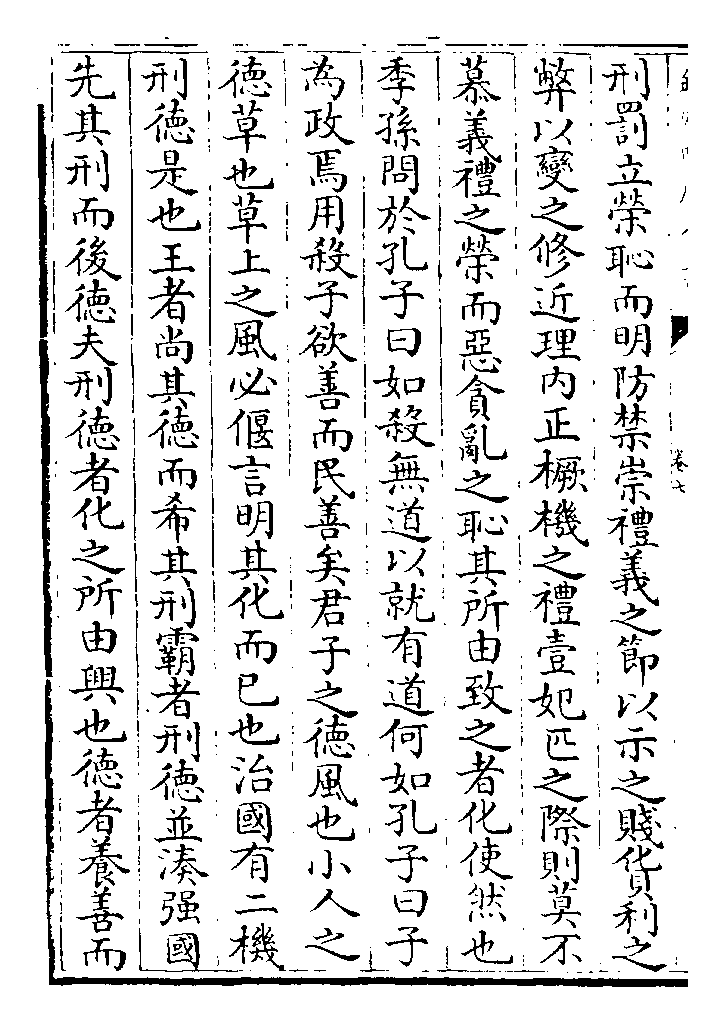 刑罰立榮恥而明防禁崇禮義之節以示之賤貨利之
弊以變之修近理内正橛機之禮壹妃匹之際則莫不
慕義禮之榮而惡貪亂之恥其所由致之者化使然也
季孫問於孔子曰如殺無道以就有道何如孔子曰子
為政焉用殺子欲善而民善矣君子之德風也小人之
德草也草上之風必偃言明其化而已也治國有二機
刑德是也王者尚其德而希其刑霸者刑德並湊强國
先其刑而後德夫刑德者化之所由興也德者養善而
卷七